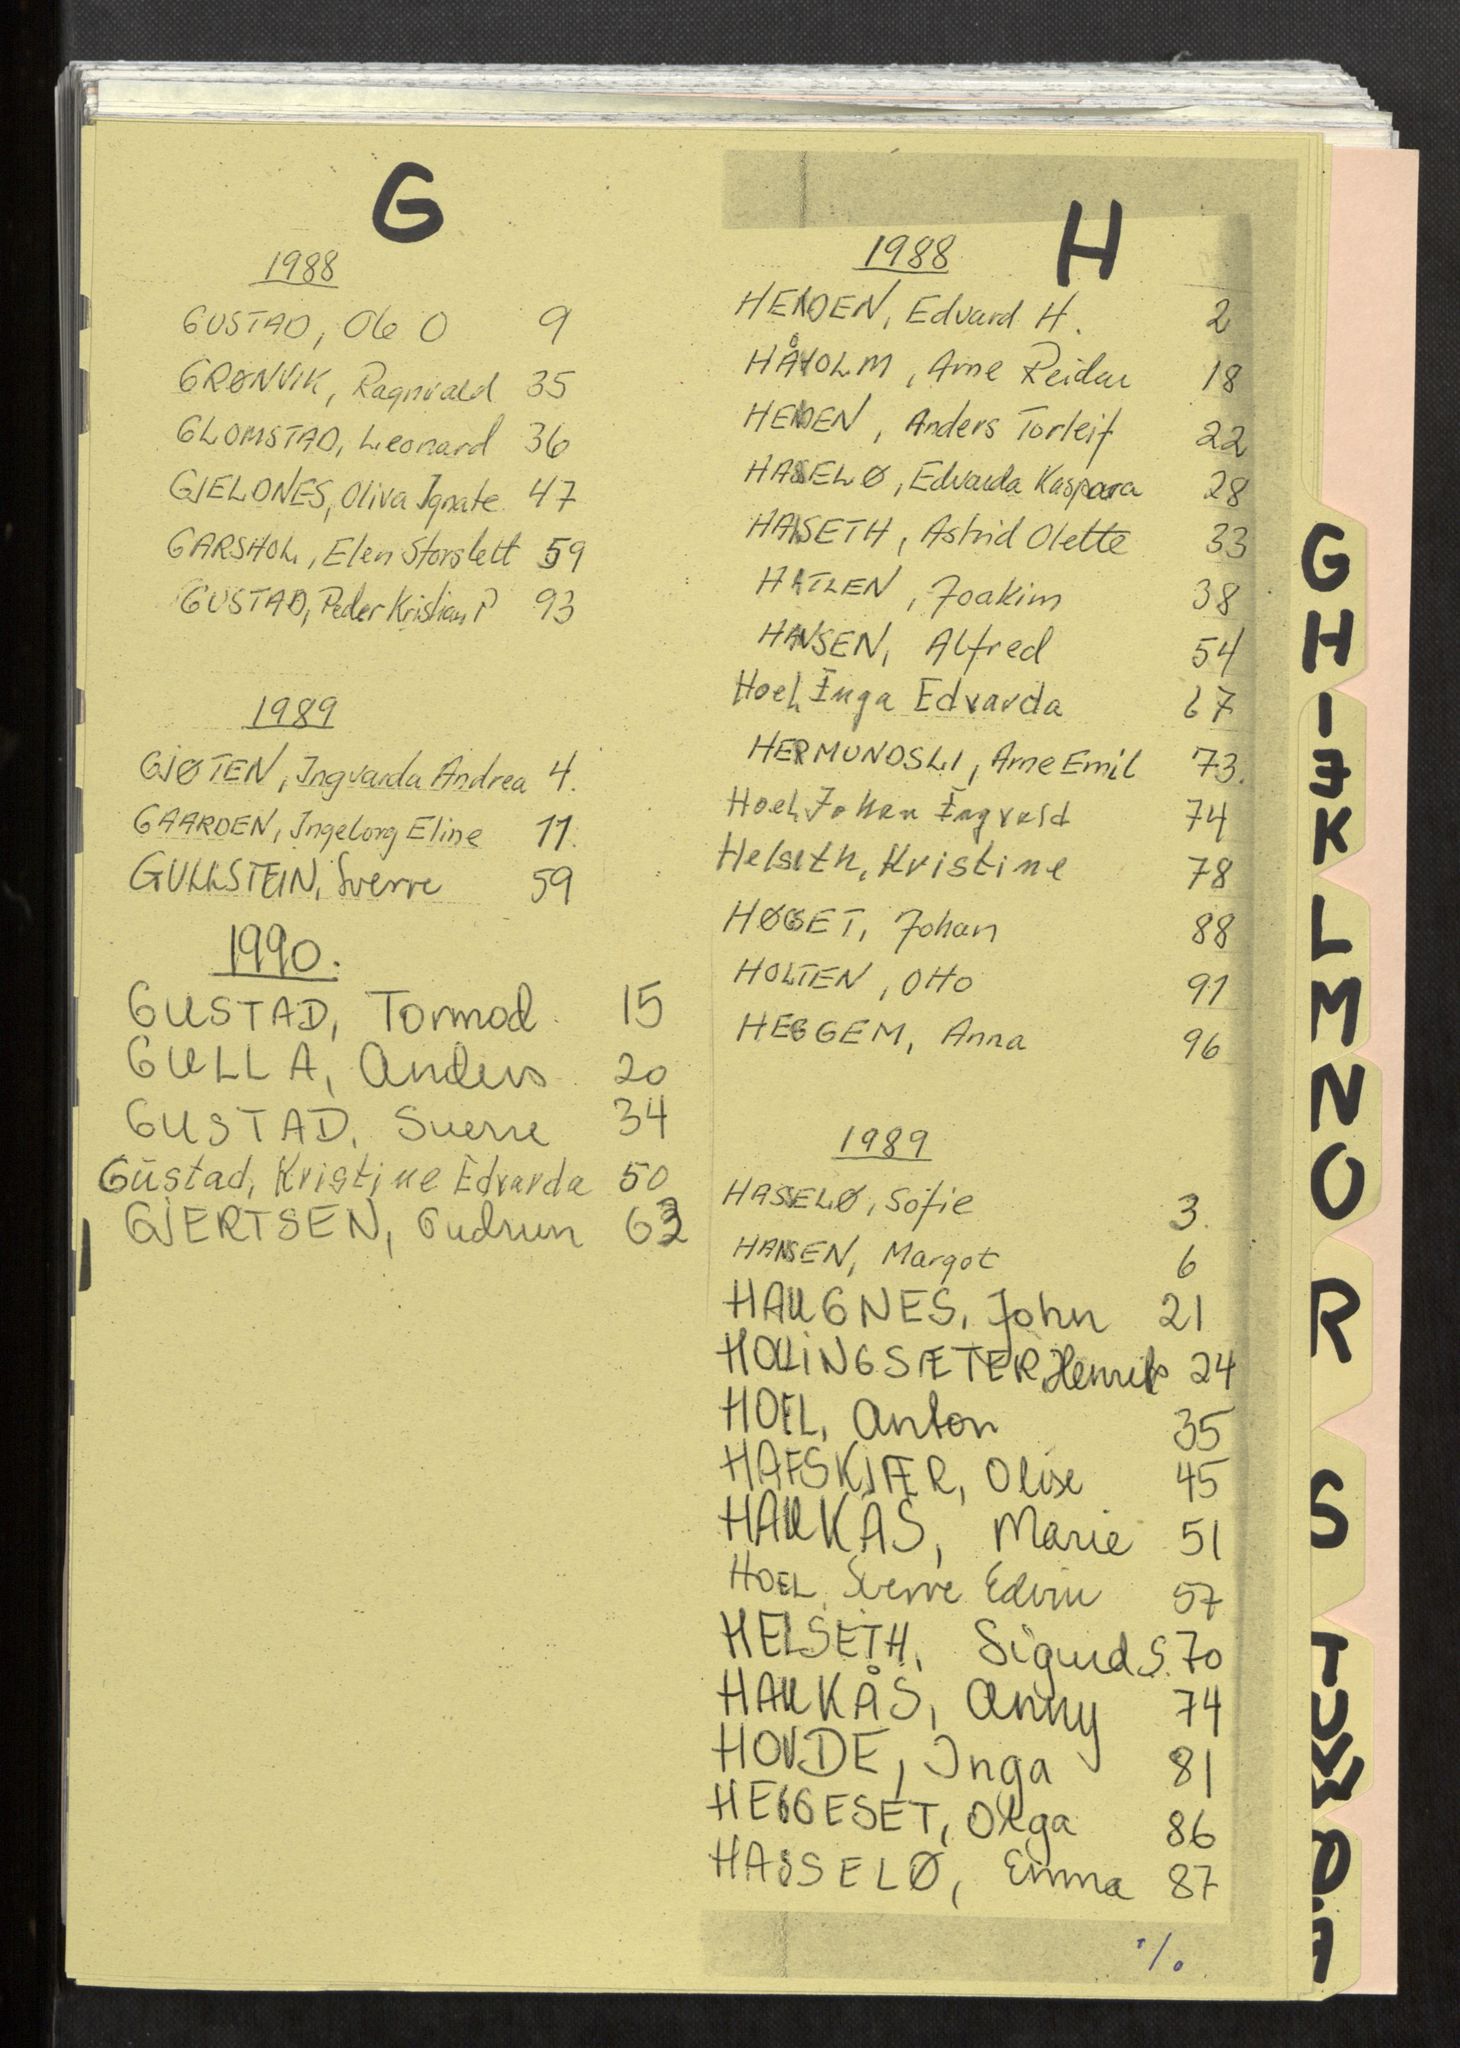 G
1988
GUSTAD, Ole O 9
GRØNVIK, Ragnvald 35
GLOMSTAD, Leonard 36
GJELDNES, Oliva Ignate 47
GARSHOL, Elen Storslett 59
GUSTAD, Peder Kristian P 93
1989
GJØTEN, Ingvarda Andrea 4.
GAARDEN, Ingeborg Eline 11.
GULLSTEIN, Sverre 59
1990.
GUSTAD, Tormod 15
GULLA, Anders 20
GUSTAD, Sverre 34
Gustad, Kristine Edvarda 50
GJERTSEN, Gudrun 63
H
1988
HENDEN, Edvard H. 2
HÅHOLM, Arne Reidar 18
HENDEN, Anders Torleif 22
HASSELØ, Edvarda Kaspara 28
HALSETH, Astrid Olette 33
HATLEN, Joakim 38
HANSEN, Alfred 54
Hoel, Inga Edvarda 67
HERMUNDSLI, Arne Emil 73.
Hoel, Johan Ingvald 74
Helseth, Kristine 78
HØGSET, Johan 88
HOLTEN, Otto 91
HEGGEM, Anna 96
1989
HASSELØ, Sofie 3.
HANSEN, Margot 6
HAUGNES, John 21
HOLLINGSÆTER, Henrik 24
HOEL, Anton 35
HAFSKJÆR, Olise 45
HAUKÅS, Marie 51
HOEL, Sverre Edvin 57
HELSETH, Sigurd S. 70
HAUKÅS, Anny 74
HOVDE, Inga 81
HEGGESET, Olga 86
HASSELØ, Emma 87
·/.
G
H
I
J
K
L
M
N
O
R
S
T
U
V
W
Ø
Å